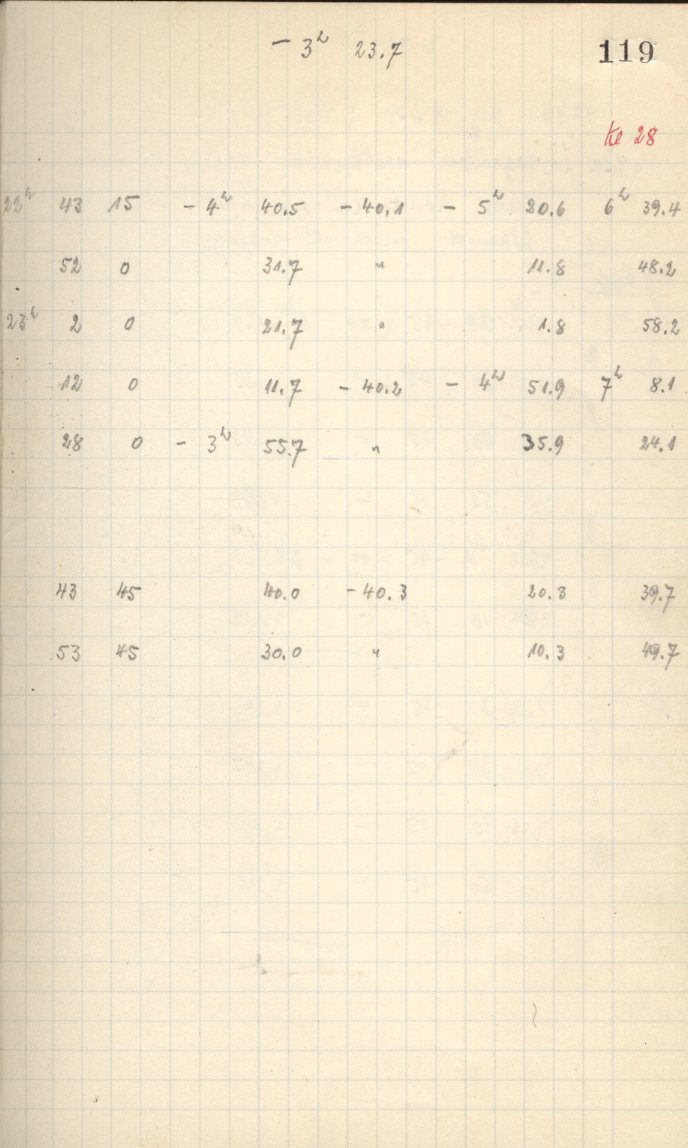 - 3ʰ 23.7
119
Ke 28
22ʰ 43 15 - 4ʰ 40.5 - 40.1 - 5ʰ 20.6 6ʰ 39.4
52 0 31.7 " 11.8 48.2
23ʰ 2 0 21.7 " 1.8 58.2
12 0 11.7 - 40.2 - 4ʰ 51.9 7ʰ 8.1
28 0 - 3ʰ 55.7 " 35.9 24.1
43 45 40.0 - 40.3 20.3 39.7
53 45 30.0 " 10.3 49.7